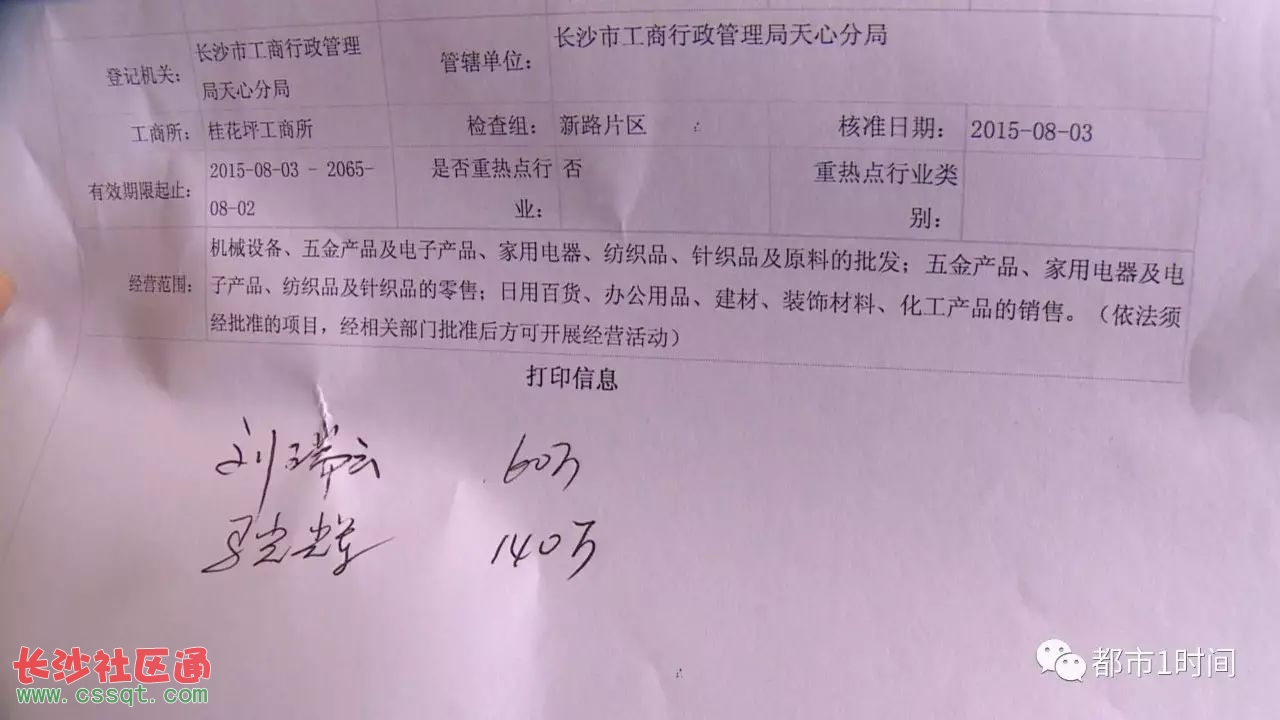 长沙市工商行政管理局天心分局
登记机关：
长沙市工商行政管理
局天心分局
管辖单位：
工商所： 桂花坪工商所 检查组： 新路片区 核准日期： 2015-08-03
有效期限起止：
2015-08-03 - 2065-
08-02
是否重热点行
业：
否
重热点行业类
别：
经营范围：
机械设备、五金产品及电子产品、家用电器、纺织品、针织品及原料的批发；五金产品、家用电器及电
子产品、纺织品及针织品的零售；日用百货、办公用品、建材、装饰材料、化工产品的销售。（依法须
经批准的项目，经相关部门批准后方可开展经营活动）
打印信息
刘瑞云 60万
140万
长沙社区通
www.cssqt.com
都市1时间